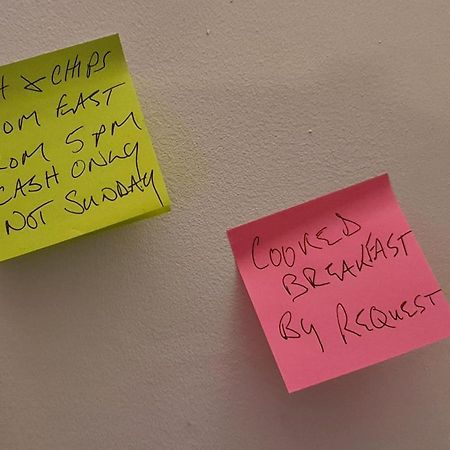 & CHIPS
OM EAST
OM 5 PM
CASH ONLY
NOT SUNDAY
COOKED
BREAKFAST
BY REQUEST